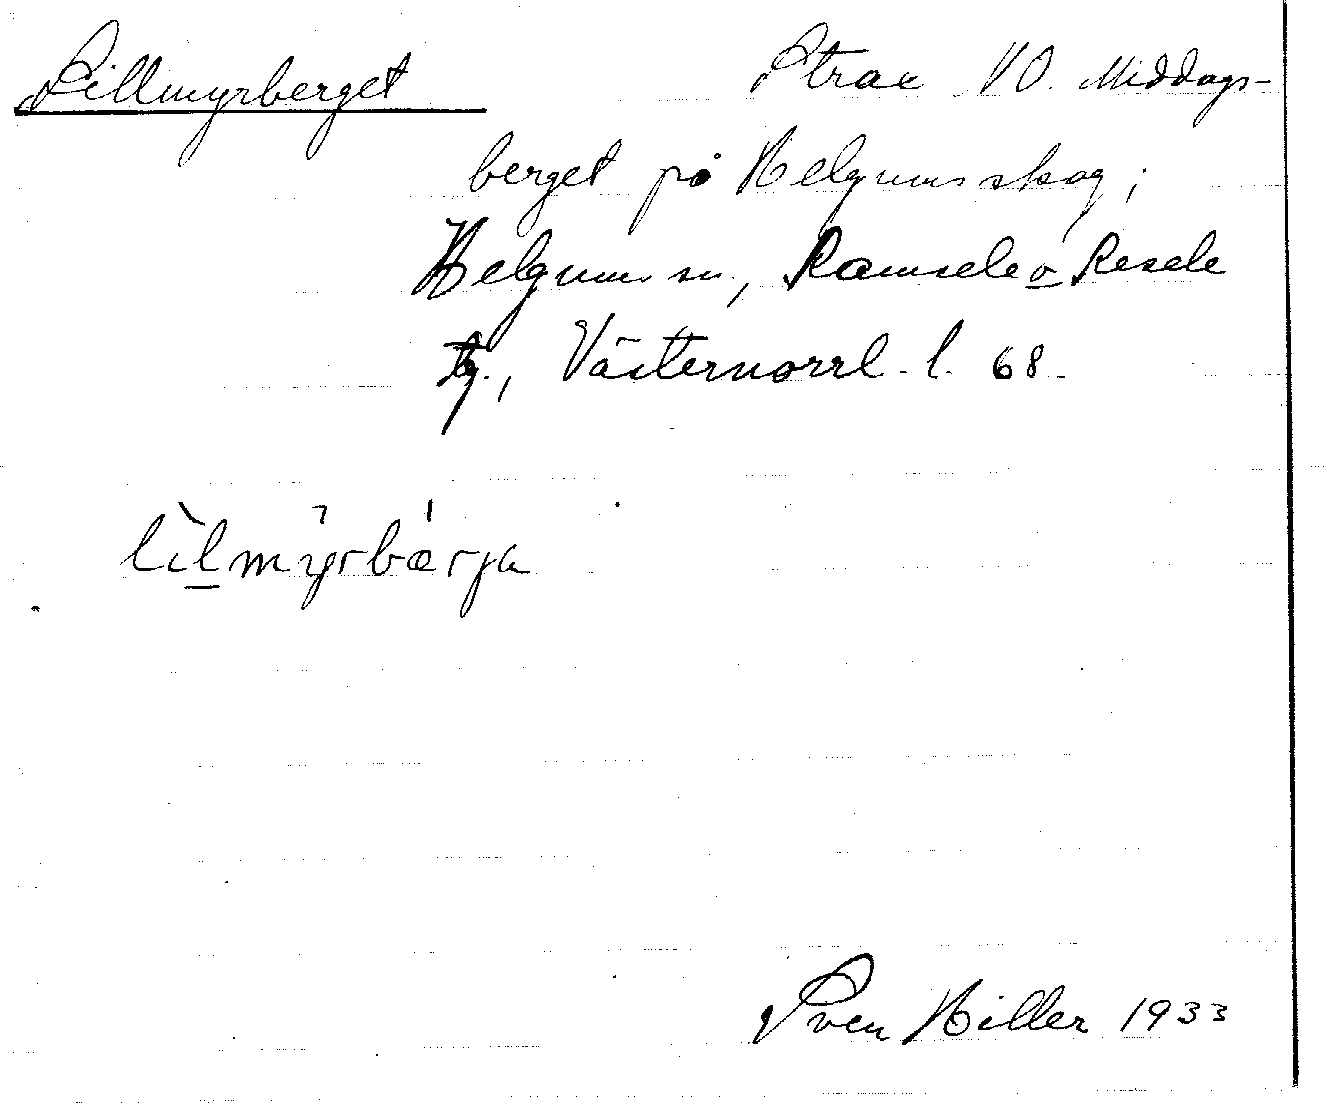 Lillmyrberget Strax NO. Middags-
berget på Helgums skog;
Helgums sn, Ramsele o Resele
tg., Västernorrl. l. 68.
lìlmyrbærja
Sven Hiller 1933